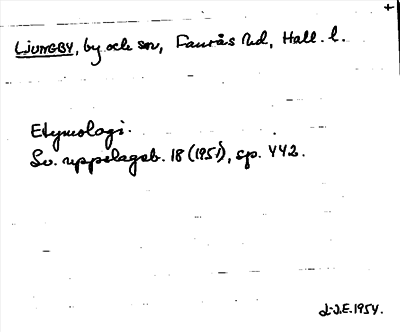 LJUNGBY, by och sn, Faurås hd, Hall. l.
Etymologi.
Sv. uppslagsb. 18 (1951), sp. 442.
L-J.E. 1954.